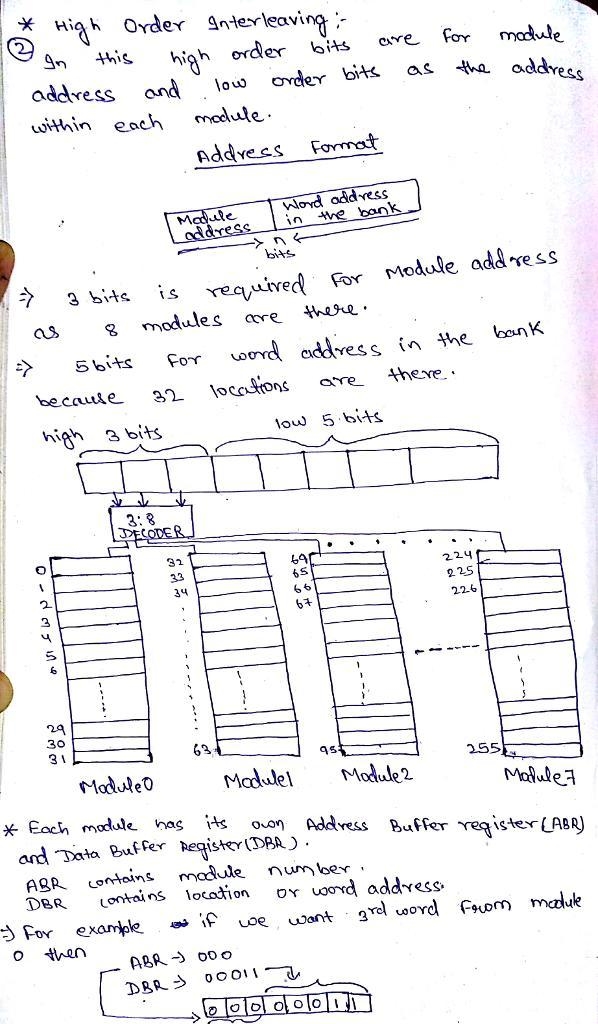 * High Order Interleaving :-
② In this high order bits are for module
address and low order bits as the address
within each module.
Address Format
Module address | Word address in the bank
n bits
=> 3 bits is required For Module address
as 8 modules are there.
=> 5 bits for word address in the bank
because 32 locations are there.
high 3 bits low 5 bits
3:8
DECODER
0 32 64 224
1 33 65 225
2 34 66 226
3 67
4
5
6
29
30
31 63 95 255
Module0 Module1 Module2 Module7
* Each module has its own Address Buffer register (ABR)
and Data Buffer Register (DBR).
ABR contains module number.
DBR contains location or word address.
=> For example if we want 3rd word from module
0 then
ABR → 000
DBR → 00011
0 0 0 0 0 0 1 1